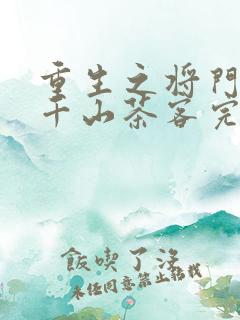 重生之将门
千山茶客完
飯喫了沒
未经同意禁止转载